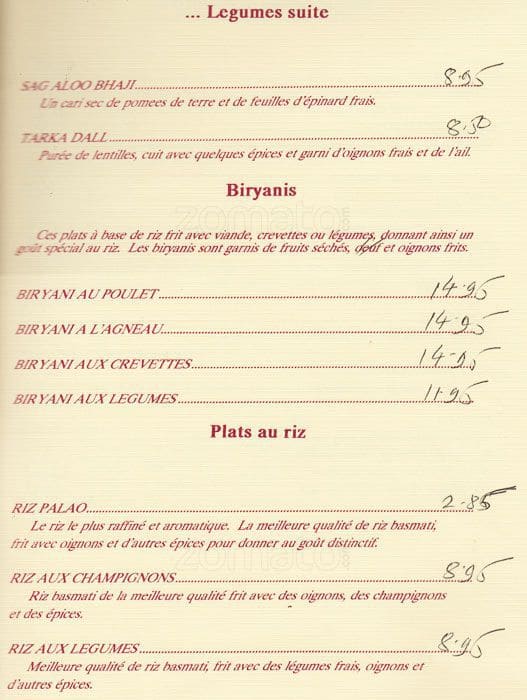 ... Legumes suite
SAG ALOO BHAJI 8.95
Un cari sec de pomees de terre et de feuilles d'épinard frais.
TARKA DALL 8.50
Purée de lentilles, cuit avec quelques épices et garni d'oignons frais et de l'ail.
Biryanis
zomato
Ces plats à base de riz frit avec viande, crevettes ou légumes, donnant ainsi un
goût spécial au riz. Les biryanis sont garnis de fruits séchés, oeuf et oignons frits.
BIRYANI AU POULET 14.95
BIRYANI A L'AGNEAU 14.95
BIRYANI AUX CREVETTES 14.95
BIRYANI AUX LEGUMES 11.95
Plats au riz
RIZ PALAO 2.85
Le riz le plus raffiné et aromatique. La meilleure qualité de riz basmati,
frit avec oignons et d'autres épices pour donner au goût distinctif.
zomato
RIZ AUX CHAMPIGNONS 8.95
Riz basmati de la meilleure qualité frit avec des oignons, des champignons
et des épices.
RIZ AUX LEGUMES 8.95
Meilleure qualité de riz basmati, frit avec des légumes frais, oignons et
d'autres épices.